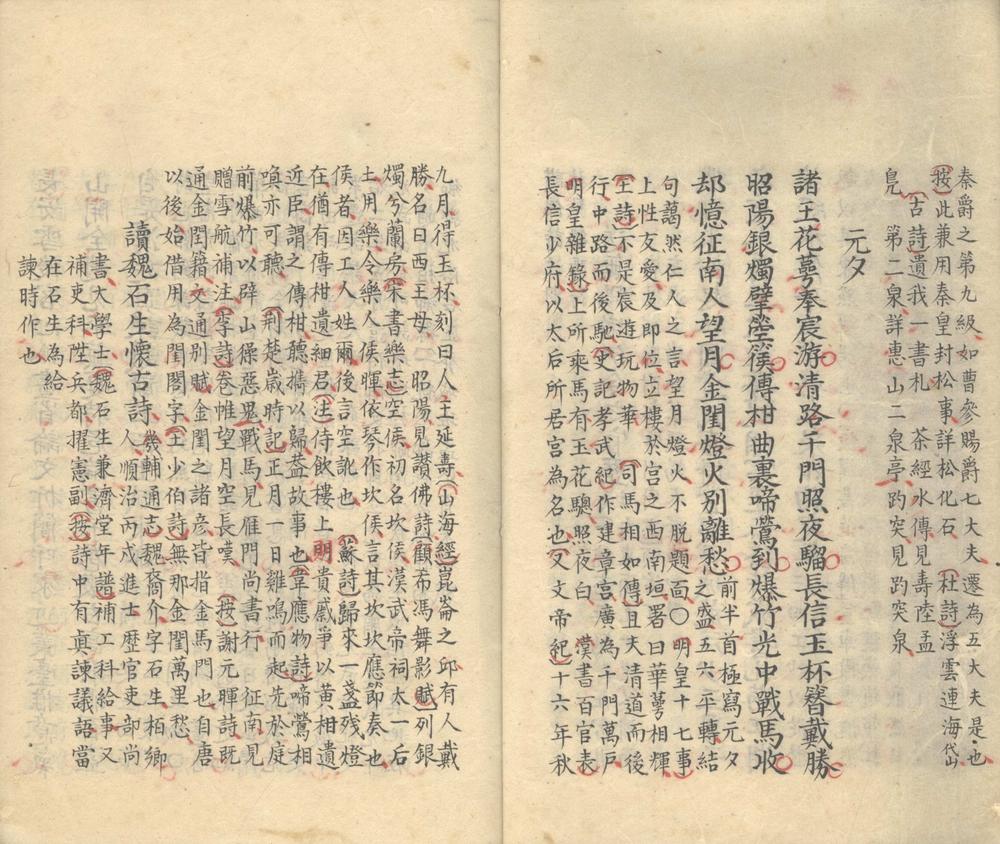 秦爵之第九級如曹參賜爵七大夫遷為五大夫是也
按此兼用秦皇封松事詳松化石 杜詩浮雲連海岱山
古詩遺我一書札 茶經水傳見壽陸孟
鳧 第二泉詳惠山二泉亭趵突見趵突泉
元夕
諸王花萼奉宸游清路千門照夜騮長信玉杯簪戴勝
昭陽銀燭擘箜篌傳柑曲裏啼鶯到爆竹光中戰馬收
却憶征南人望月金閨燈火別離愁 前半首極寫元夕之盛五六平轉結
句藹然仁人之言望月燈火不脱題面〇 明皇十七事
上性友愛及即位立樓於宮之西南垣署曰華萼相輝
王詩不是宸遊玩物華 司馬相如傳且夫清道而後
行中路而後馳史記孝武紀作建章宮廣為千門萬戶
明皇雜錄上所乘馬有玉花驄照夜白 漢書百官表
長信少府以太后所居宮為名也又文帝紀十六年秋
九月得玉杯刻曰人主延壽山海經崑崙之邱有人戴
勝名曰西王母 昭陽見讚佛詩顧希馮舞影賦列銀
燭兮蘭房宋書樂志空侯初名坎侯漢武帝祠太一后
土用樂令樂人侯暉依琴作坎侯言其坎坎應節奏也
侯者因工人姓爾後言空訛也 蘇詩歸來一盞殘燈
在猶有傳柑遺細君注侍飲樓上貴戚爭以黃柑遺
近臣謂之傳柑聽攜以歸葢故事也韋應物詩啼鶯相
喚亦可聽 荆楚歲時記正月一日雞鳴而起先於庭
前爆竹以辟山臊惡鬼戰馬見雁門尚書行 征南見
贈雪航補注李詩卷帷望月空長嘆 按謝元暉詩既
通金閨籍文通別賦金閨之諸彦皆指金馬門也自唐
以後始借用為閨閤字王少伯詩無那金閨萬里愁
讀魏石生懷古詩 畿輔通志魏裔介字石生栢鄉人順治丙戌進士歷官吏部尚
書大學士魏石生兼濟堂年譜補工科給事又
補吏科陞兵都擢憲副按詩中有真諫議語當
在石生為給
諫時作也